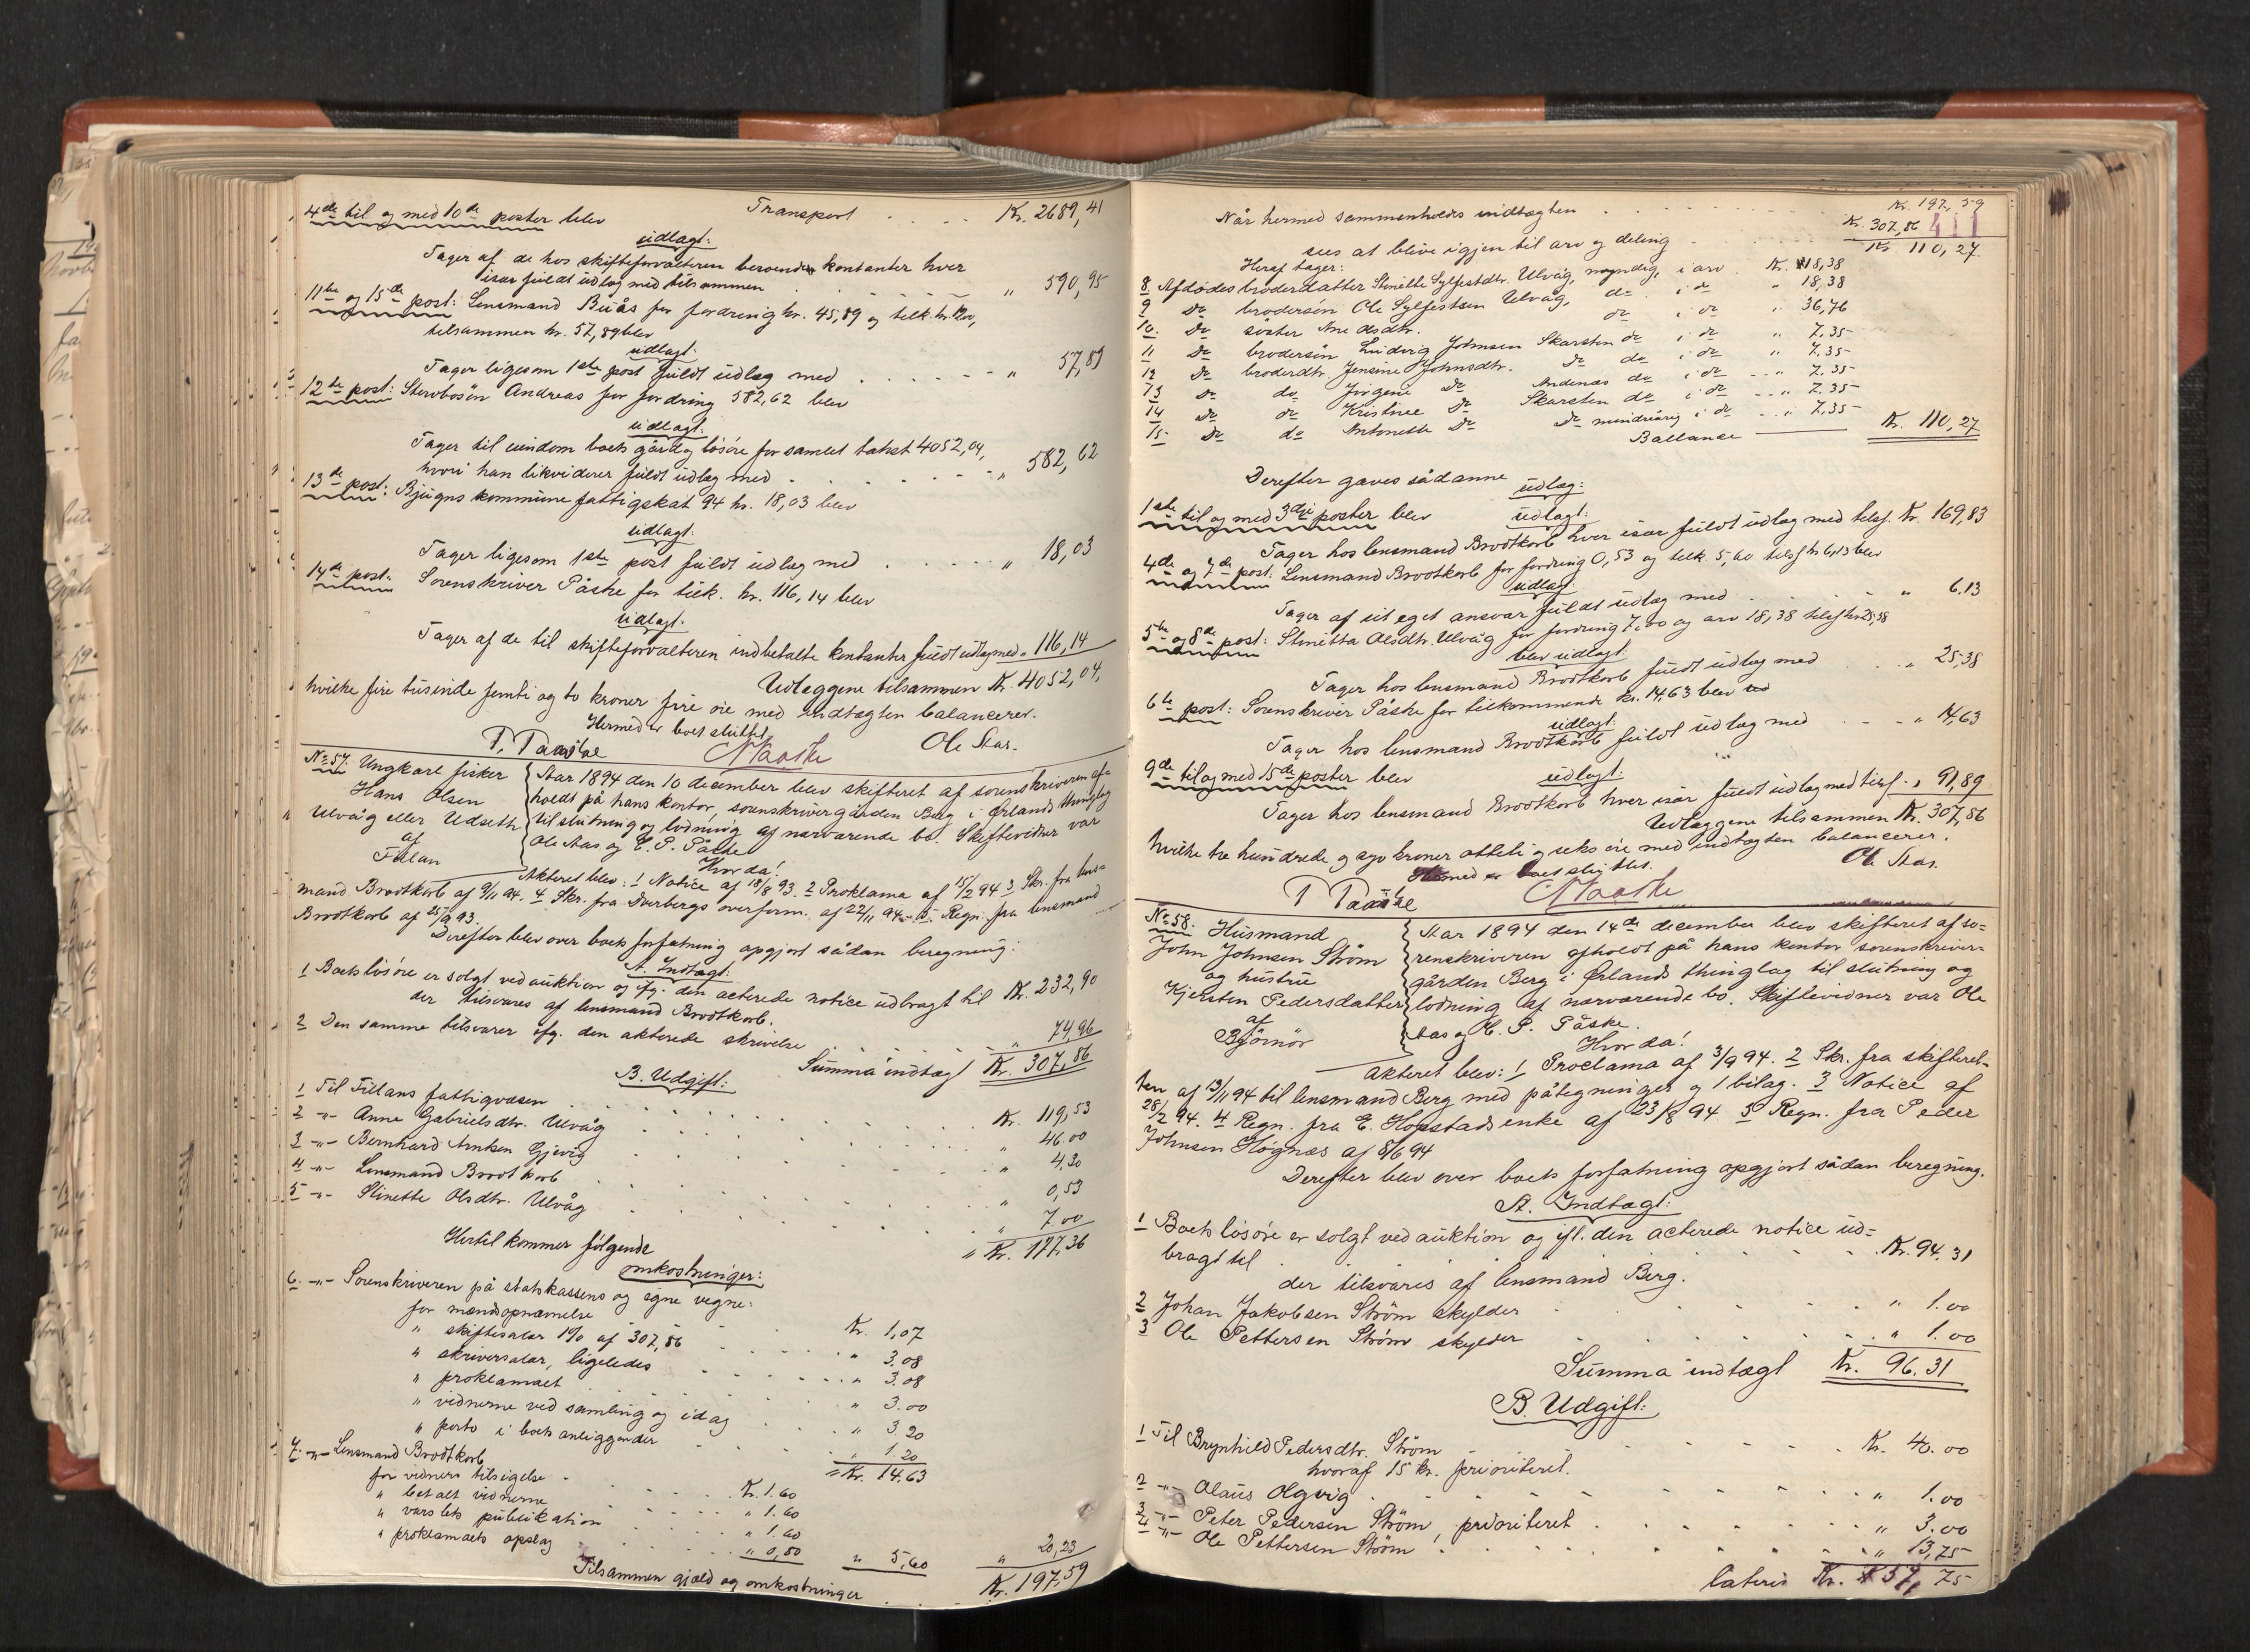 4de til og med 10de poster blev Transport Kr. 2689,41
udlagt:
Tager af de hos skifteforvalteren beroende kontanter hver
især fuldt udlæg med tilsammen " 590,95
11te og 15de post: Lensmand Buås for fordring kr. 45,89 og tilk. kr.
tilsammen kr. 57,89 blev
udlagt:
Tager ligesom 1ste post fuldt udlæg med " 57,89
12te post: Stervbosøn Andreas for fordring 582,62 blev
udlagt:
Tager til eiendom boets gård og løsøre for samlet takst 4052,04,
hvori han likviderer fuldt udlæg med " 582,62
13de post: Bjugns kommune fattigskat 94 kr. 18,03 blev
udlagt:
Tager ligesom 1ste post fuldt udlæg med " 18,03
14de post: Sorenskriver Påske for tilk. kr. 116,14 blev
udlagt:
Tager af de til skifteforvalteren indbetalte kontanter fuldt udlæg med " 116,14
Udlæggene tilsammen Kr. 4052,04,
hvilke fire tusinde femti og to kroner fire øre med indtægten balancerer.
Hermed er boet sluttet.
Ole Aas.
No 57. Ungkarl fisker
Hans Olsen
Ulvåg eller Udseth
af
Fillan
Aar 1894 den 10 december blev skifteret af sorenskriveren af=
holdt på hans kontor, sorenskrivergården Berg i Ørlands thinglag
til slutning og lodning af nærværende bo. Skiftevidner var
Ole Aas og E. P. Påske
Hvorda!
Akteret blev: 1 Notice af 18/8 93. 2 Proklama af 15/2 94 3 Skr. fra lens=
mand Brodtkorb af 9/11 94. 4 Skr. fra Dverbergs overform. af 22/11 94. 5 Regn. fra lensmand
Brodtkorb af 25/9 93.
Derefter blev over boets forfatning opgjort sådan beregning:
A. Indtægt:
1 Boets løsøre er solgt ved auktion og ifg. den acterede notice udbragt til Kr. 232,90
der tilsvares af lensmand Brodtkorb.
2 Den samme tilsvarer ifg. den akterede skrivelse " 74,96
Summa indtægt Kr. 307,86
B. Udgift:
1 Til Fillans fattigvæsen Kr. 119,53
2 -"- Anne Gabrielsdtr. Ulvåg " 46.00
3 -"- Bernhard Antksen Gjevig " 4,30
4 -"- Lensmand Brodtkorb " 0,53
5 -"- Stinette Olsdtr. Ulvåg " 7.00
" Kr. 177,36
Hertil kommer følgende
omkostninger:
6. -"- Sorenskriveren på statskassens og egne vegne:
for mændsopnævnelse Kr. 1,07
" skiftesalær 1% af 307,86 " 3.08
" skriversalær, ligeledes " 3.08
" proklamaet " 3.00
" vidnerne ved samling og idag " 3.20
" porto i boets anliggender " 1.20
= Kr. 14.63
7. -"- Lensmand Brodtkorb
for vidners tilsigelse Kr. 1.60
" betalt vidnerne " 1.60
" varslets publikation " 1.60
" proklamaets opslag " 0,80 " 5,60 " 20,23
Tilsammen gjæld og omkostninger Kr. 197,59
Kr. 197,59
Når hermed sammenholdes indtægten Kr. 307,86 411
sees at blive igjen til arv og deling Kr. 110,27.
Heraf tager:
8 Afdødes broderdatter Stinette Sylfestdtr. Ulvåg, myndig, i arv Kr. 18,38
9 Do brodersøn Ole Sylfestsen Ulvåg, do i do " 18,38
10. Do søster Ane Olsdtr. do i do " 36,76
11 Do brodersøn Ludvig Johnsen Skarsten do i do " 7.35
12 Do broderdtr. Jensine Johnsdtr. Do do i do " 7.35
13 Do do Jørgine Do Andenæs do i do " 7.35
14 Do do Kristine Do Skarsten do i do " 7.35
15 Do do Antonette Do Do mindreårig i do " 7.35 Kr. 110,27
Ballance
Derefter gaves sådanne
udlæg:
1ste til og med 3die poster blev udlagt:
Tager hos lensmand Brodtkorb hver især fuldt udlæg med tils. Kr. 169,83
4de og 7de post: Lensmand Brodtkorb for fordring 0,53 og tilk. 5,60 tils. kr 6,13 blev
udlagt
Tager af sit eget ansvar fuldt udlæg med " 6.13
5te og 8de post: Stinetta Olsdtr. Ulvåg for fordring 7,00 og arv 18,38 tils. kr. 25,38
blev udlagt:
Tager hos lensmand Brodtkorb fuldt udlæg med " 25,38
6te post: Sorenskriver Påske for tilkommende kr. 14,63 blev
udlagt:
Tager hos lensmand Brodtkorb fuldt udlæg med " 14,63
9de til og med 15de poster blev udlagt:
Tager hos lensmand Brodtkorb hver især fuldt udlæg med tils. " 91,89
Udlæggene tilsammen Kr. 307,86
hvilke tre hundrede og syv kroner otteti og seks øre med indtægten balancerer.
Hermed er boet sluttet.
Ole Aas.
No 58. Husmand
John Johnsen Strøm
og hustru
Kjersten Pedersdatter
af
Bjørnør
Aar 1894 den 14de december blev skifteret af so=
renskriveren afholdt på hans kontor sorenskriver=
gården Berg i Ørlands thinglag til slutning og
lodning af nærværende bo. Skiftevidner var Ole
Aas og E. P. Påske.
Hvorda!
Akteret blev: 1 Proclama af 3/9 94. 2 Skr. fra skifteret=
ten af 13/11 94 til lensmand Berg med påtegninger og 1 bilag. 3 Notice af
28/2 94. 4 Regn. fra E. Hopstads enke af 23/8 94. 5 Regn. fra Peder
Johnsen Høgnæs af 8/6 94
Derefter blev over boets forfatning opgjort sådan beregning.
A. Indtægt:
1 Boets løsøre er solgt ved auktion og ifl. den acterede notice ud=
bragt til Kr. 94.31
der tilsvares af lensmand Berg.
2 Johan Jakobsen Strøm skylder " 1.00
3 Ole Pettersen Strøm skylder " 1.00
Summa indtægt Kr. 96.31
B. Udgift:
1 Til Brynhild Pedersdtr. Strøm Kr. 40.00
hvoraf 15 kr. prioriteret.
2 -"- Olaus Olgvig " 1.00
3 -"- Peter Pedersen Strøm, prioriteret " 3.00
4 -"- Ole Pettersen Strøm " 13,75
lateris Kr. 57,75